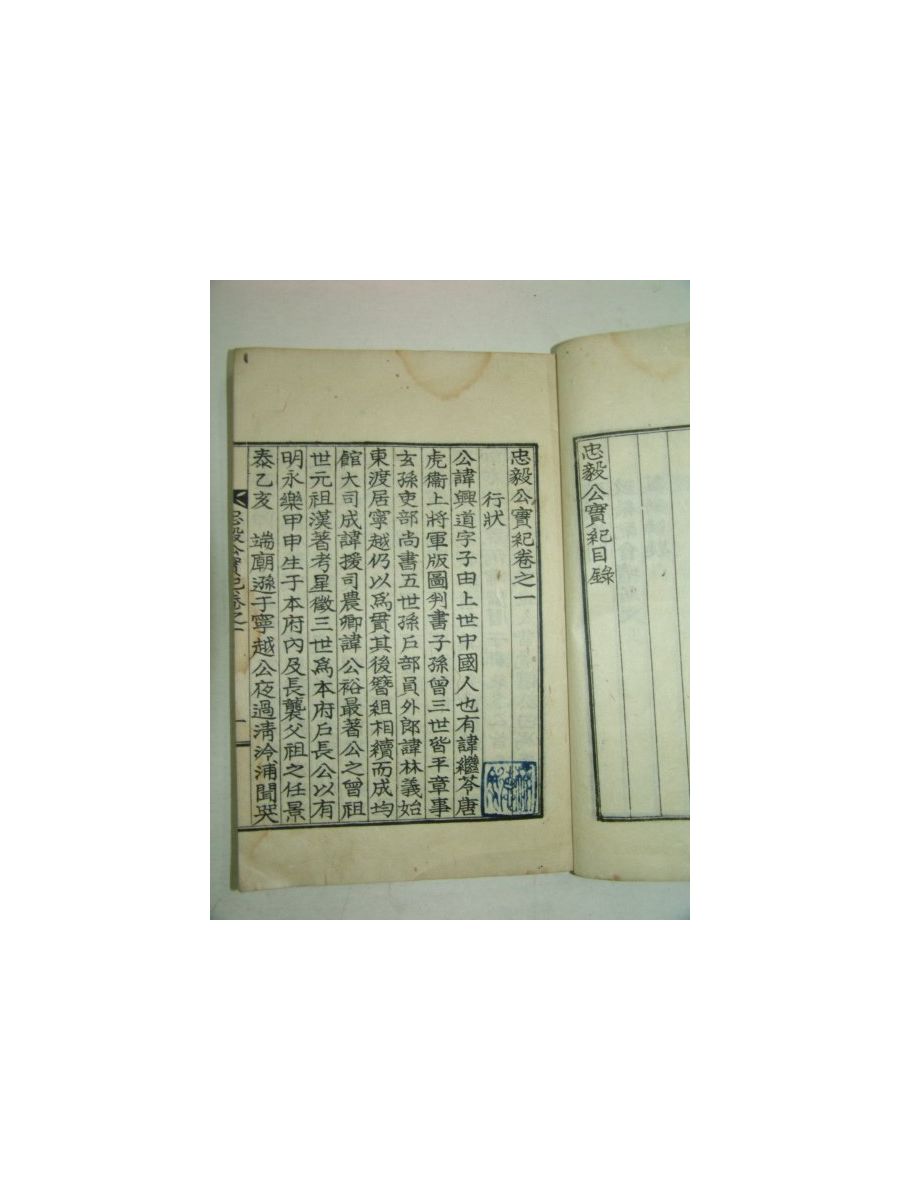 忠毅公實紀目錄
忠毅公實紀卷之一
行狀
公諱興道字子由上世中國人也有諱繼苓唐
虎衞上將軍版圖判書子孫曾三世皆平章事
玄孫吏部尚書五世孫戶部員外郎諱林義始
東渡居寧越仍以爲貫其後簪組相續而成均
館大司成諱援司農卿諱公裕最著公之曾祖
世元祖漢著考星徵三世爲本府戶長公以有
明永樂甲申生于本府內及長襲父祖之任景
泰乙亥 端廟遜于寧越公夜過淸泠浦聞哭
忠毅公實紀卷之一 一